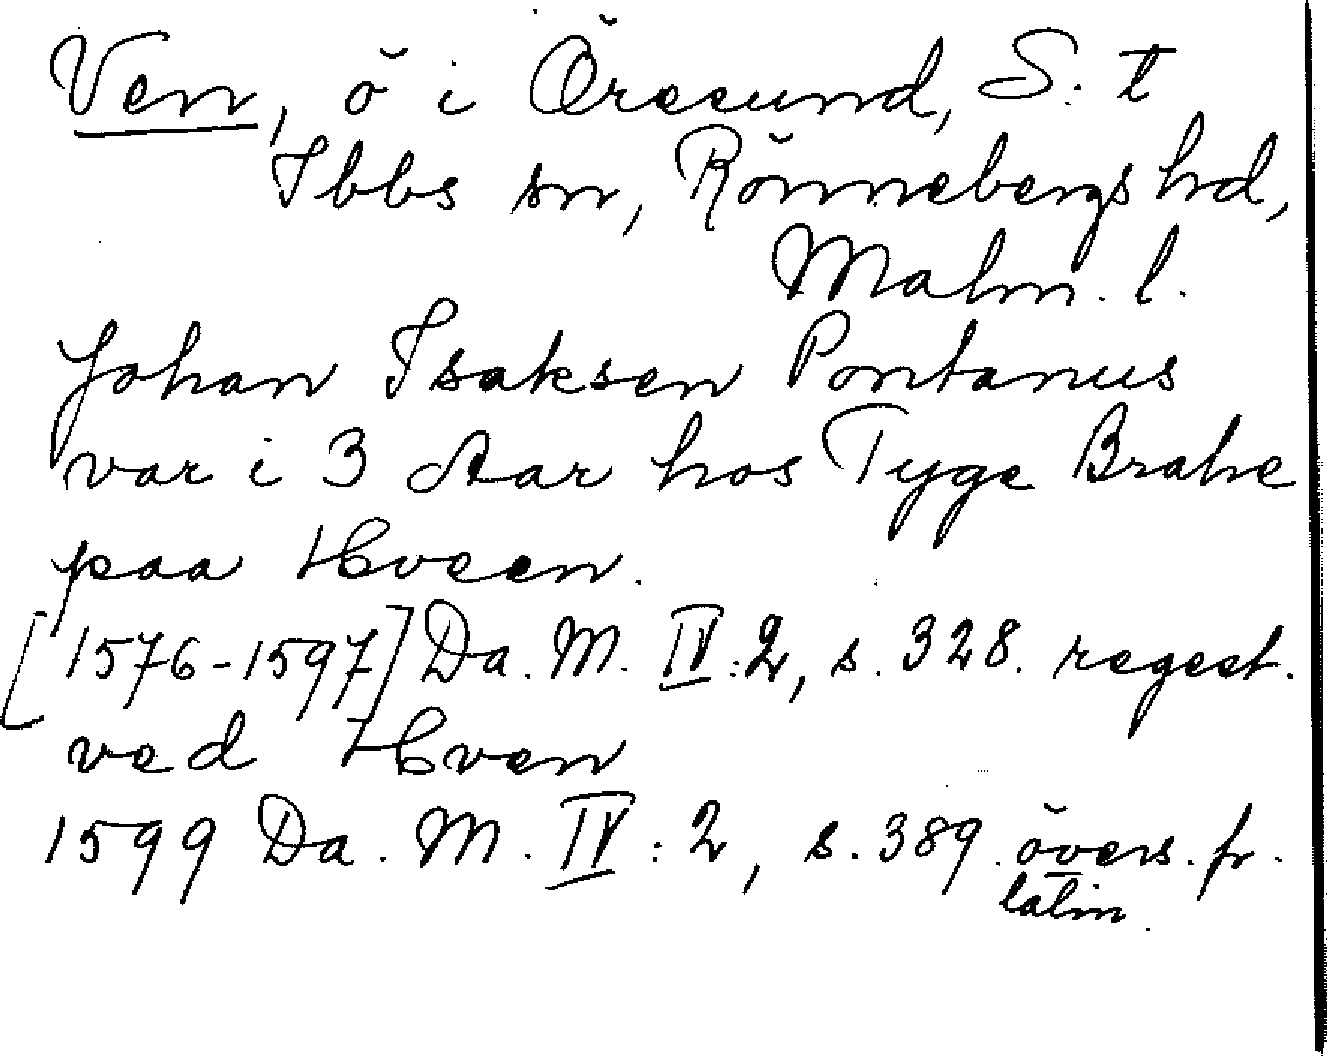 Ven, ö i Öresund, S:t
Ibbs sn, Rönnebergs hd,
Malm. l.
Johan Isaksen Pontanus
var i 3 Aar hos Tyge Brahe
paa Hveen.
[1576-1597] Da. M. IV:2, s. 328. regest.
ved Hven
1599 Da. M. IV:2, s. 389. övers. fr.
latin.